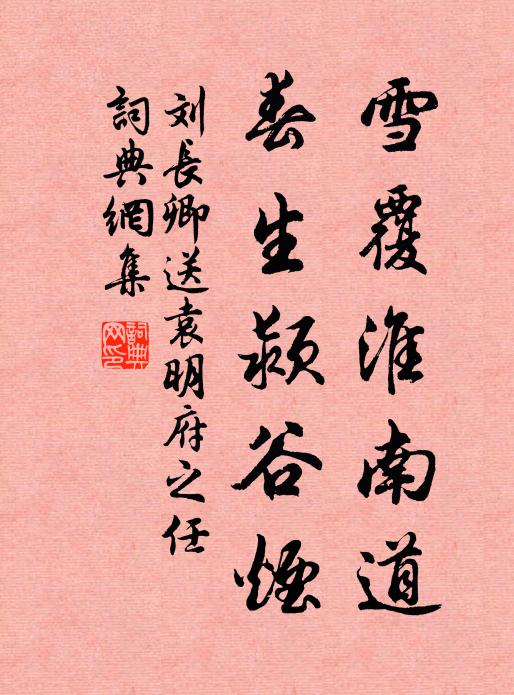 雪覆淮南道
春生潁谷煙
刘長卿送袁明府之任
詞典網集
詞典網印